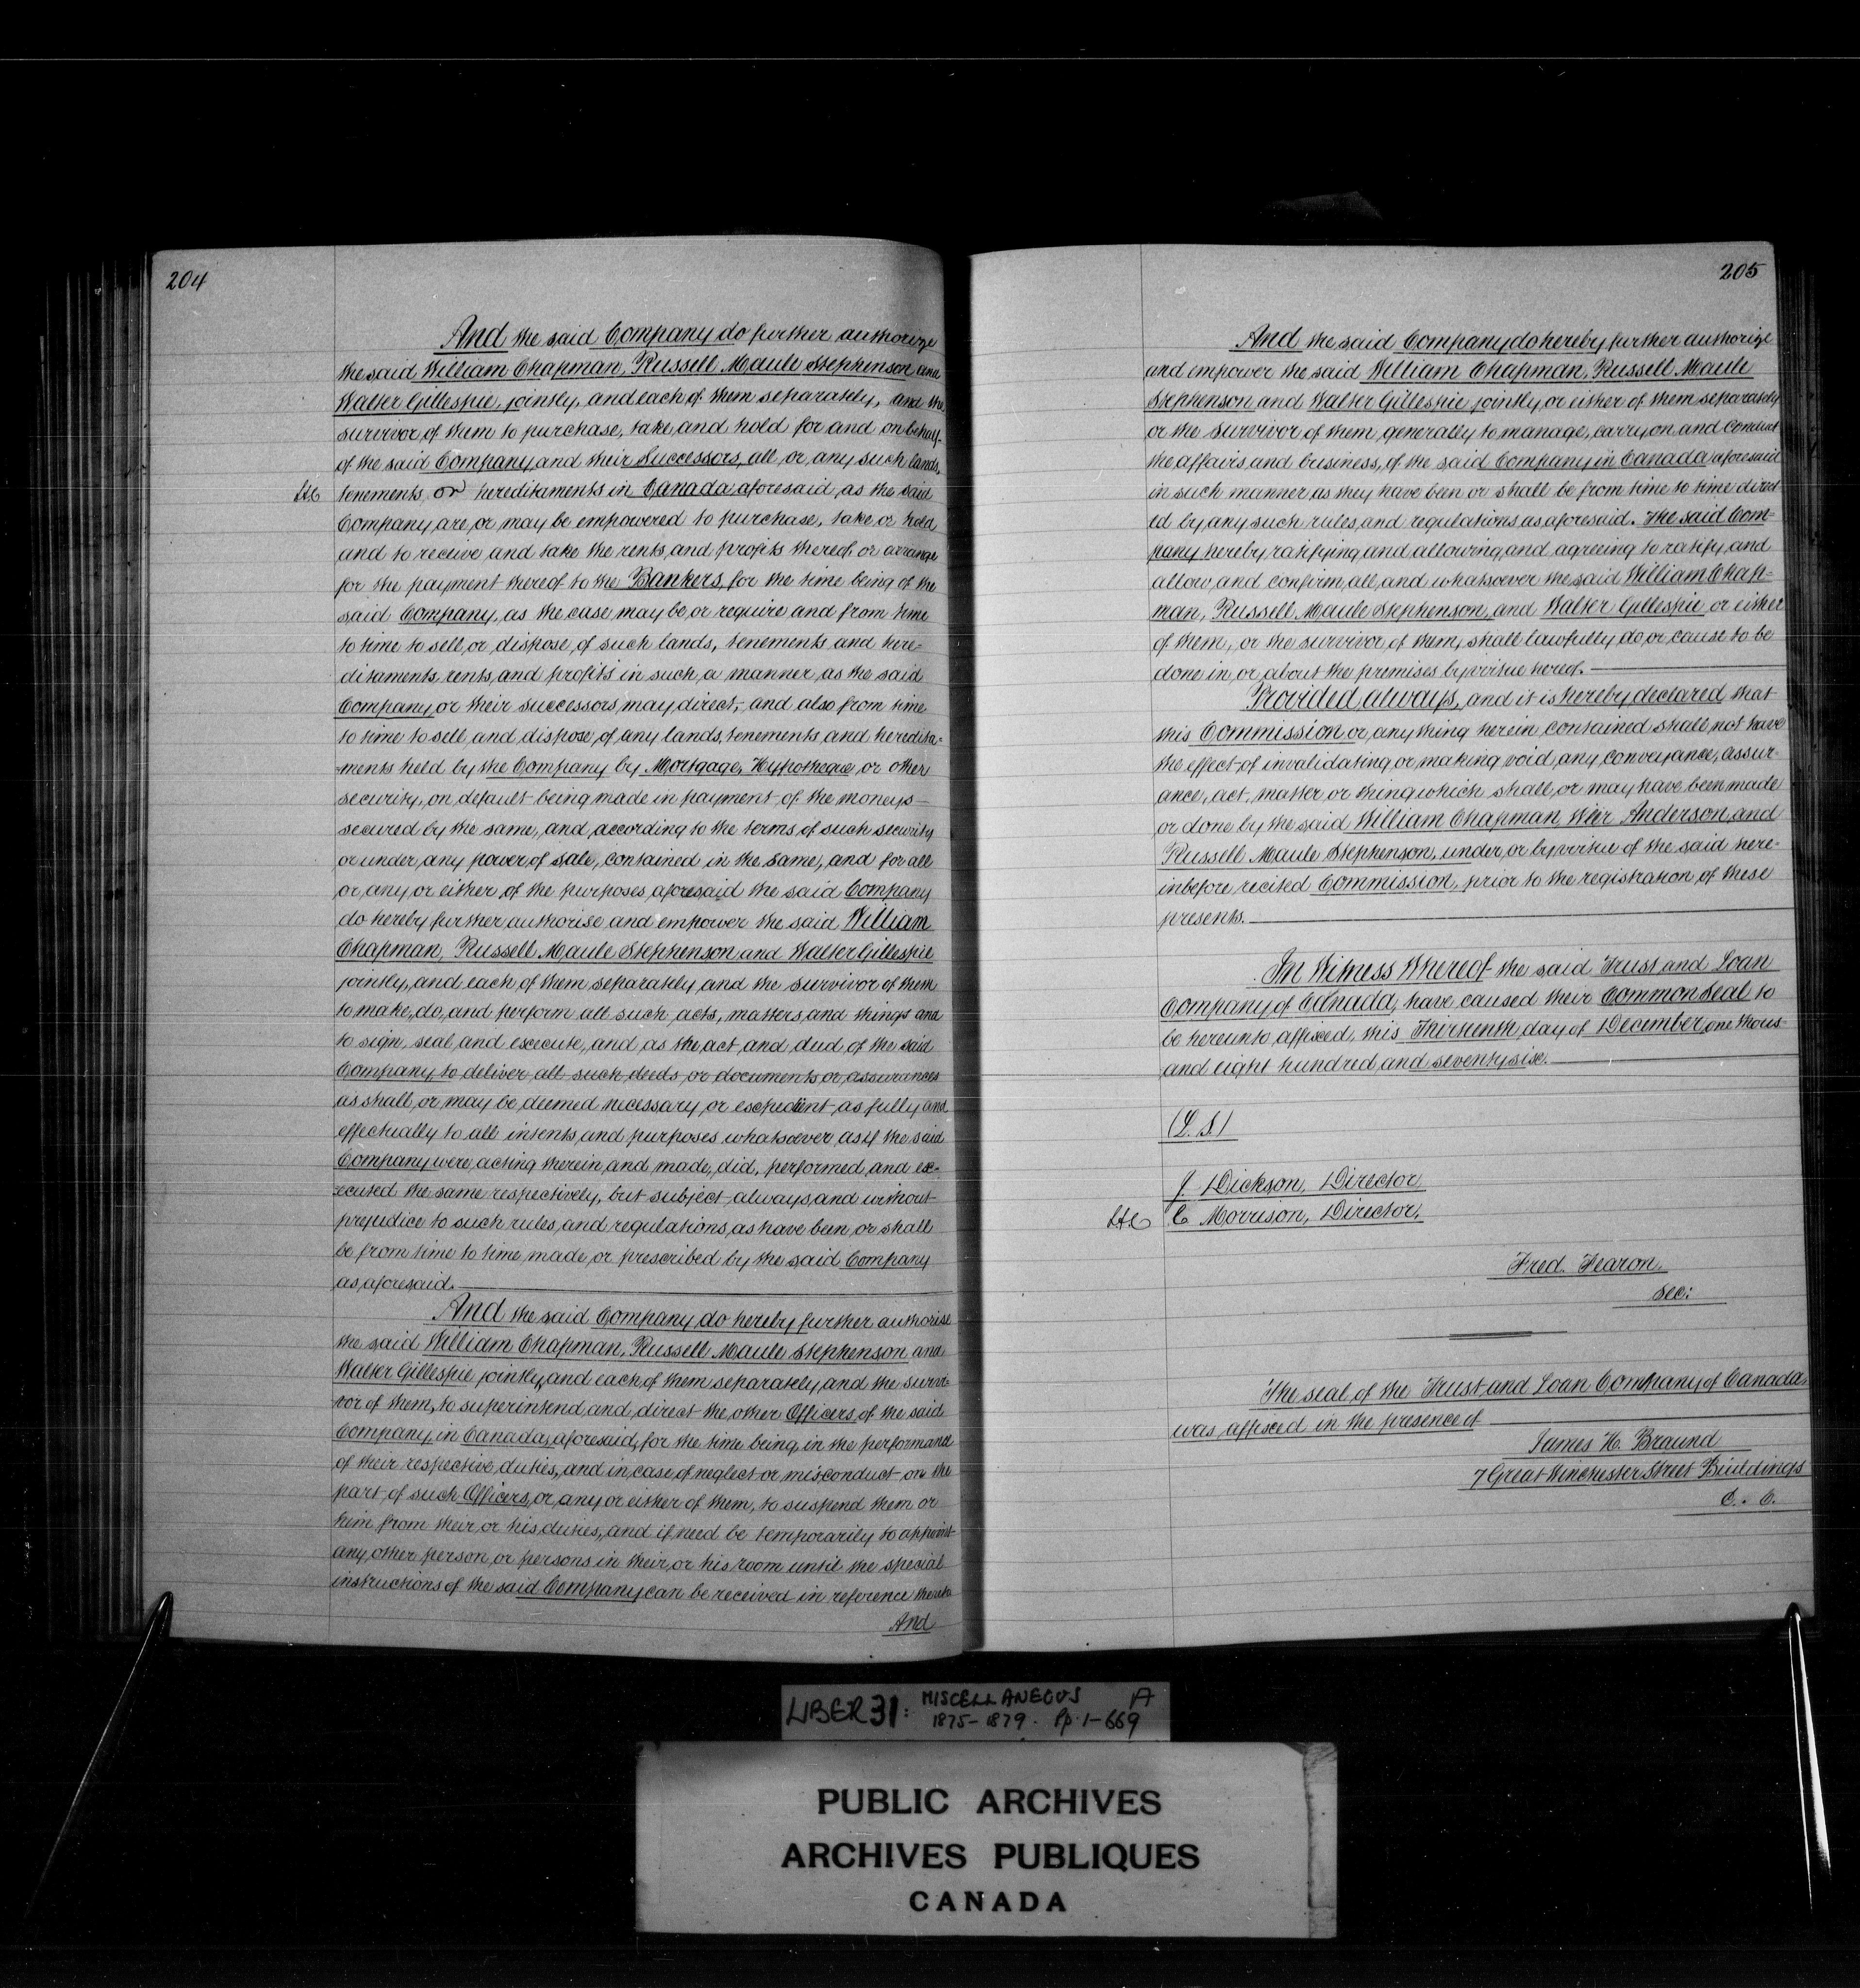 204
And the said Company do further authorize
the said William Chapman, Russell Maule Stephenson and
Walter Gillespie, jointly, and each of them separately, and the
survivor of them to purchase, take and hold for and on behalf
of the said Company and their Successors, all or any such lands,
tenements or hereditaments in Canada aforesaid, as the said
Company are or may be empowered to purchase, take or hold,
and to receive and take the rents and profits thereof, or arrange
for the payment thereof to the Bankers, for the time being of the
said Company, as the case may be or require and from time
to time to sell or dispose of such lands, tenements and here-
ditaments rents and profits in such a manner as the said
Company or their successors may direct, and also from time
to time to sell and dispose of any lands, tenements and heredita-
-ments held by the Company by Mortgage, Hypotheque or other
security, on default being made in payment of the moneys
secured by the same, and according to the terms of such security
or under any power of sale, contained in the same, and for all
or any or either of the purposes aforesaid the said Company
do hereby further authorise and empower the said William
Chapman, Russell Maule Stephenson and Walter Gillespie
jointly, and each of them separately and the survivor of them
to make, do, and perform all such acts, matters and things and
to sign, seal, and execute, and as the act and deed of the said
Company to deliver all such deeds or documents or assurances
as shall or may be deemed necessary or expedient as fully and
effectually to all intents and purposes whatsoever as if the said
Company were acting therein and made, did, performed and ex-
-ecuted the same respectively, but subject always and without
prejudice to such rules and regulations, as have been or shall
be from time to time made or prescribed by the said Company
as aforesaid.
And the said Company do hereby further authorise
the said William Chapman, Russell Maule Stephenson and
Walter Gillespie jointly and each of them separately and the survi-
vor of them, to superintend and direct the other Officers of the said
Company in Canada, aforesaid, for the time being, in the performance
of their respective duties, and in case of neglect or misconduct on the
part of such Officers, or any or either of them, to suspend them or
him from their or his duties, and if need be temporarily to appoint
any other person or persons in their or his room until the special
instructions of the said Company can be received in reference thereto
And
205
And the said Company do hereby further authorize
and empower the said William Chapman, Russell Maule
Stephenson and Walter Gillespie jointly or either of them separately
or the survivor of them generally to manage, carry on and conduct
the affairs and business, of the said Company in Canada aforesaid
in such manner as they have been or shall be from time to time direct
ed by any such rules and regulations as aforesaid. The said Com-
pany hereby ratifying and allowing and agreeing to ratify and
allow and confirm all and whatsoever the said William Chap-
man, Russell Maule Stephenson, and Walter Gillespie or either
of them, or the survivor of them, shall lawfully do or cause to be
done in or about the premises by virtue hereof.
Provided always, and it is hereby declared that
this Commission or any thing herein contained shall not have
the effect of invalidating or making void any conveyance, assur-
ance, act, matter or thing which shall or may have been made
or done by the said William Chapman, Weir Anderson and
Russell Maule Stephenson, under or by virtue of the said here-
inbefore recited Commission, prior to the registration of these
presents.
In Witness Whereof the said Trust and Loan
Company of Canada, have caused their Common Seal to
be hereunto affixed, this Thirteenth day of December, one thous-
and eight hundred and seventy six.
(L. S.)
J. Dickson, Director
C Morrison, Director.
Fred. Fearon.
Sec:
The seal of the Trust and Loan Company of Canada,
was affixed in the presence of
James H. Braund
7 Great Winchester Street Buildings
E. C.
LIBER 31: MISCELLANEOUS A
1875-1879. Pp. 1-669
PUBLIC ARCHIVES
ARCHIVES PUBLIQUES
CANADA